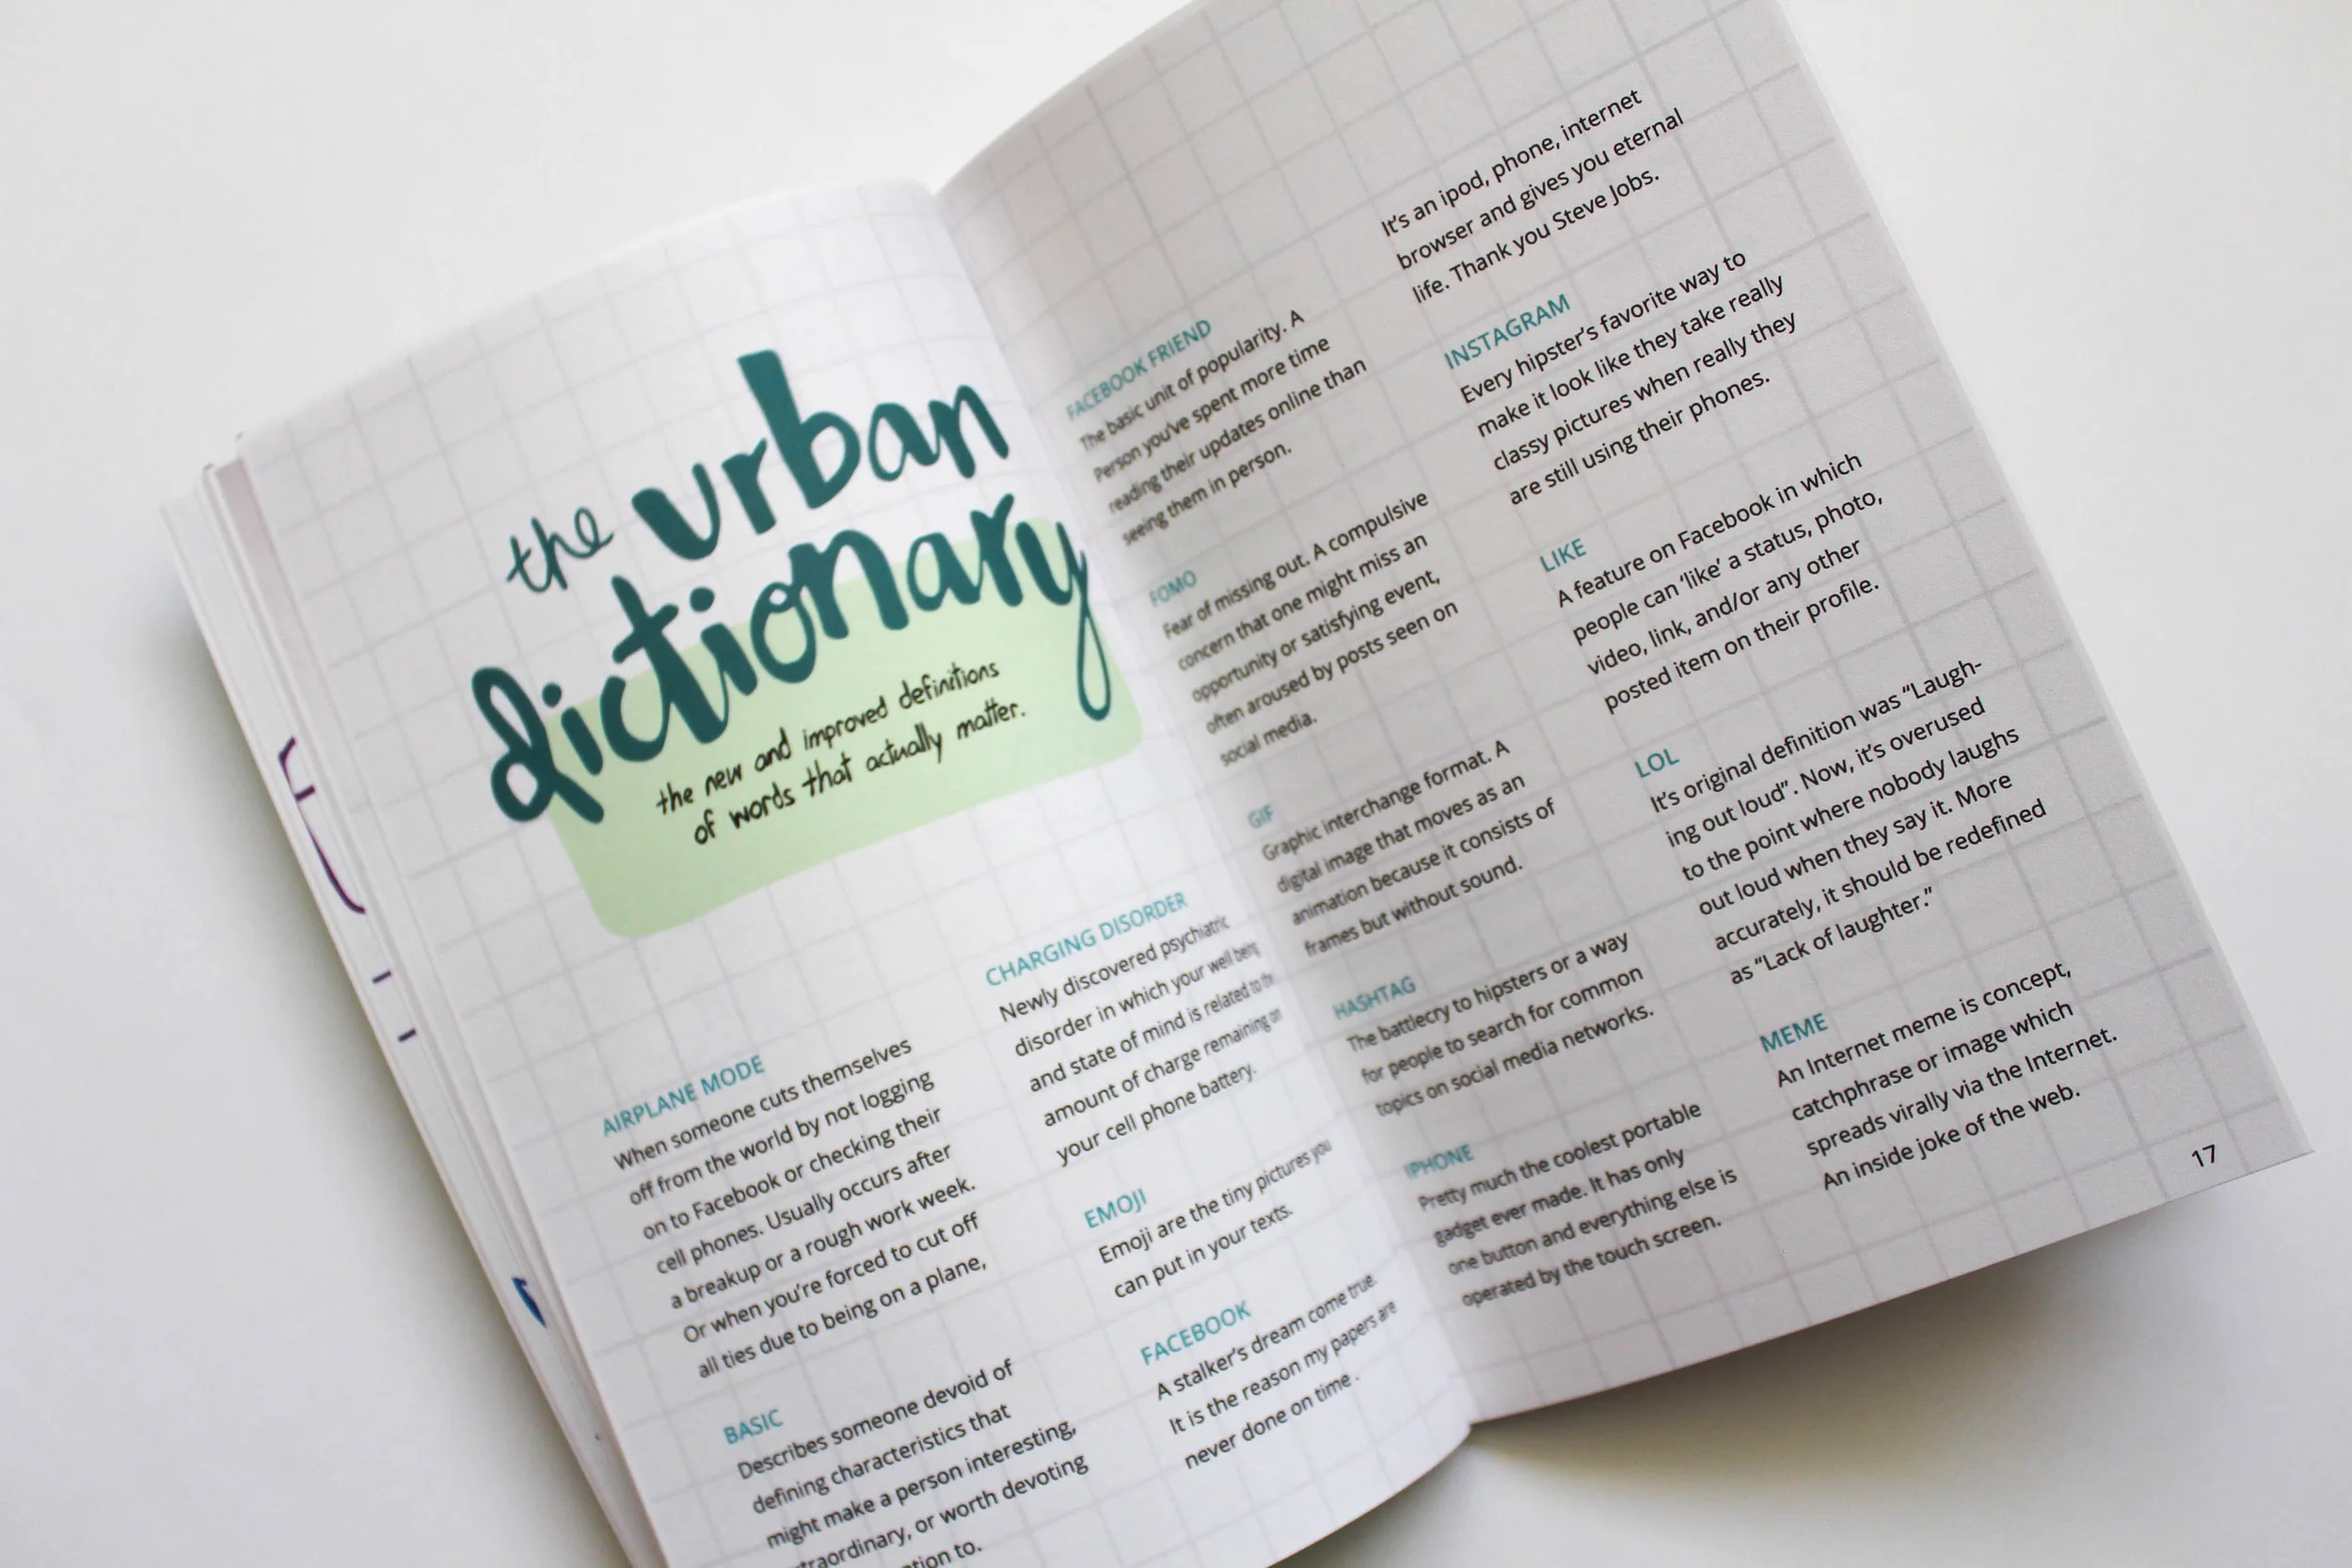 the urban
dictionary
the new and improved definitions
of words that actually matter.
AIRPLANE MODE
When someone cuts themselves
off from the world by not logging
on to Facebook or checking their
cell phones. Usually occurs after
a breakup or a rough work week.
Or when you're forced to cut off
all ties due to being on a plane,
BASIC
Describes someone devoid of
defining characteristics that
might make a person interesting,
traordinary, or worth devoting
tion to.
CHARGING DISORDER
Newly discovered psychiatric
disorder in which your well being
and state of mind is related to the
amount of charge remaining on
your cell phone battery.
EMOJI
Emoji are the tiny pictures you
can put in your texts.
FACEBOOK
A stalker's dream come true.
It is the reason my papers are
never done on time .
FACEBOOK FRIEND
The basic unit of popularity. A
Person you've spent more time
reading their updates online than
seeing them in person.
FOMO
Fear of missing out. A compulsive
concern that one might miss an
opportunity or satisfying event,
often aroused by posts seen on
social media.
GIF
Graphic interchange format. A
digital image that moves as an
animation because it consists of
frames but without sound.
HASHTAG
The battlecry to hipsters or a way
for people to search for common
topics on social media networks.
IPHONE
Pretty much the coolest portable
gadget ever made. It has only
one button and everything else is
operated by the touch screen.
It's an ipod, phone, internet
browser and gives you eternal
life. Thank you Steve Jobs.
INSTAGRAM
Every hipster's favorite way to
make it look like they take really
classy pictures when really they
are still using their phones.
LIKE
A feature on Facebook in which
people can 'like' a status, photo,
video, link, and/or any other
posted item on their profile.
LOL
It's original definition was "Laugh-
ing out loud". Now, it's overused
to the point where nobody laughs
out loud when they say it. More
accurately, it should be redefined
as "Lack of laughter."
MEME
An Internet meme is concept,
catchphrase or image which
spreads virally via the Internet.
An inside joke of the web.
17